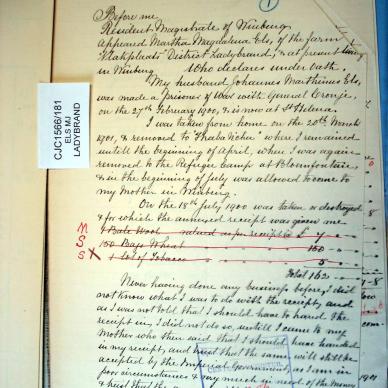 1
Before me
Resident Magistrate of Winberg.
Appeared Martha Magdalena Els, of the farm
"Vlakplaats" District Ladybrand, & at present living
in Winburg Who declares under oath.
My husband Johannes Marthinus Els,
was made a prisoner of War with General Cronje
on the 27th February 1900, & is now at St Helena.
I was taken from home on the 20th March
1901, & removed to Thaba 'Nchu where I remained
until the beginning of April, when I was again
removed to the Refugee camp at Bloemfontein
& in the beginning of July was allowed to come to
my Mother in Winburg.
On the 18th July 1900 was taken or destroyed
& for which the annexed receipt was given me
M 1 Bale Wool valued as per receipt £ 7
S 150 Bags Wheat 150
S X 1 Lot of Tobacco 5
Total 162
Never having done any business before, I did
not know what I was to do with the receipt, and
as I was not told that I should have to hand the
receipt in, I did not do so, until I came to my
Mother who then said that I should have handed
in my receipt, and trust that the same will still be
accepted by the Imperial Government, as I am in
poor circumstances & my much in need of the Money
& trust that the
CJC1566/181
ELS MJ
LADYBRAND